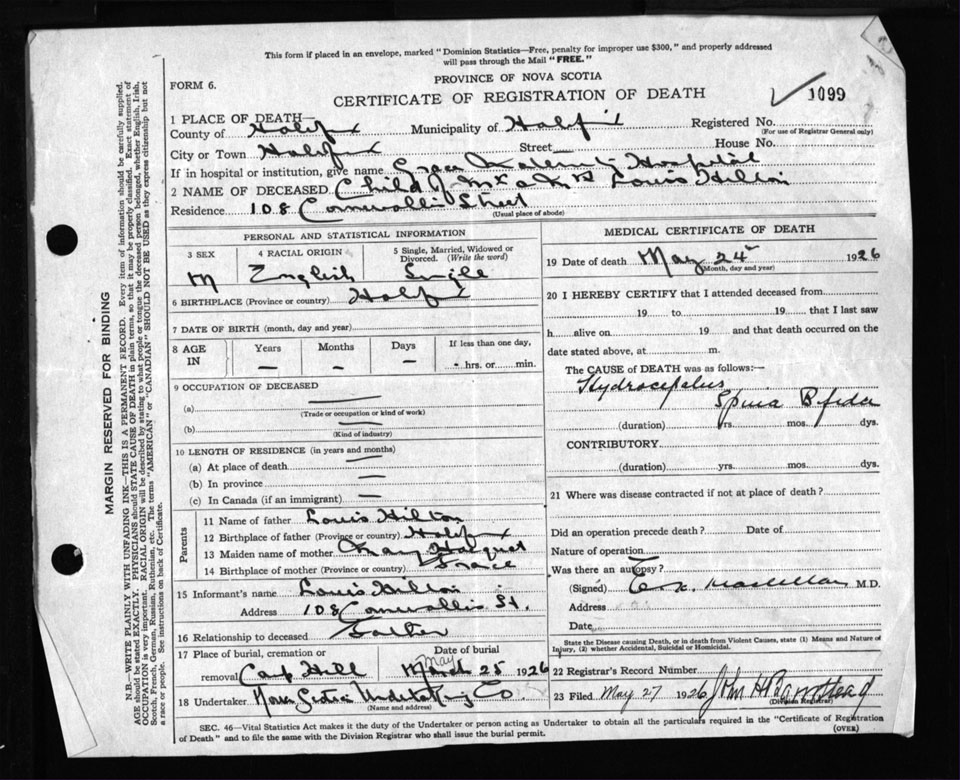 This form if placed in an envelope, marked "Dominion Statistics—Free, penalty for improper use $300," and properly addressed
will pass through the Mail "FREE."
PROVINCE OF NOVA SCOTIA
FORM 6.
CERTIFICATE OF REGISTRATION OF DEATH
1099
1 PLACE OF DEATH—
County of Halifax Municipality of Halifax Registered No.
(For use of Registrar General only)
City or Town Halifax Street House No.
If in hospital or institution, give name Grace Maternity Hospital
2 NAME OF DECEASED Child of Mr & Mrs Louis Hilton
Residence 108 Cornwallis Street
(Usual place of abode)
PERSONAL AND STATISTICAL INFORMATION
3 SEX 4 RACIAL ORIGIN 5 Single, Married, Widowed or
Divorced. (Write the word)
M English Single
6 BIRTHPLACE (Province or country) Halifax
7 DATE OF BIRTH (month, day and year)
8 AGE IN Years Months Days If less than one day,
— — — hrs. or min.
9 OCCUPATION OF DECEASED
(a)
(Trade or occupation or kind of work)
(b)
(Kind of industry)
10 LENGTH OF RESIDENCE (in years and months)
(a) At place of death
(b) In province
(c) In Canada (if an immigrant)
Parents
11 Name of father Louis Hilton
12 Birthplace of father (Province or country) Halifax
13 Maiden name of mother May
14 Birthplace of mother (Province or country)
15 Informant's name Louis Hilton
Address 108 Cornwallis St.
16 Relationship to deceased Father
17 Place of burial, cremation or Date of burial
removal Camp Hill May March 25 1926
18 Undertaker Nova Scotia Undertaking Co
(Name and address)
MEDICAL CERTIFICATE OF DEATH
19 Date of death May 24 1926
(Month, day and year)
20 I HEREBY CERTIFY that I attended deceased from
19 to 19 that I last saw
h alive on 19 and that death occurred on the
date stated above, at m.
The CAUSE of DEATH was as follows:—
Hydrocephalus
Spina Bifida
(duration) yrs. mos. dys.
CONTRIBUTORY
(duration) yrs. mos. dys.
21 Where was disease contracted if not at place of death?
Did an operation precede death? Date of
Nature of operation
Was there an autopsy?
(Signed) MacLellan M.D.
Address
Date
State the Disease causing Death, or in death from Violent Causes, state (1) Means and Nature of
Injury, (2) whether Accidental, Suicidal or Homicidal.
22 Registrar's Record Number
23 Filed May 27 1926 John H Barnstead
(Division Registrar)
SEC. 46—Vital Statistics Act makes it the duty of the Undertaker or person acting as Undertaker to obtain all the particulars required in the "Certificate of Registration
of Death" and to file the same with the Division Registrar who shall issue the burial permit. (OVER)
MARGIN RESERVED FOR BINDING
N.B.—WRITE PLAINLY WITH UNFADING INK—THIS IS A PERMANENT RECORD. Every item of information should be carefully supplied.
AGE should be stated EXACTLY. PHYSICIANS should STATE CAUSE OF DEATH in plain terms, so that it may be properly classified. Exact statement of
OCCUPATION is very important. RACIAL ORIGIN will be described by stating to what people or tongue the deceased person belonged, whether English, Irish,
Scotch, French, German, Russian, Ruthenian, etc. The terms "AMERICAN" or "CANADIAN" SHOULD NOT BE USED as they express citizenship but not
a race or people. See instructions on back of Certificate.